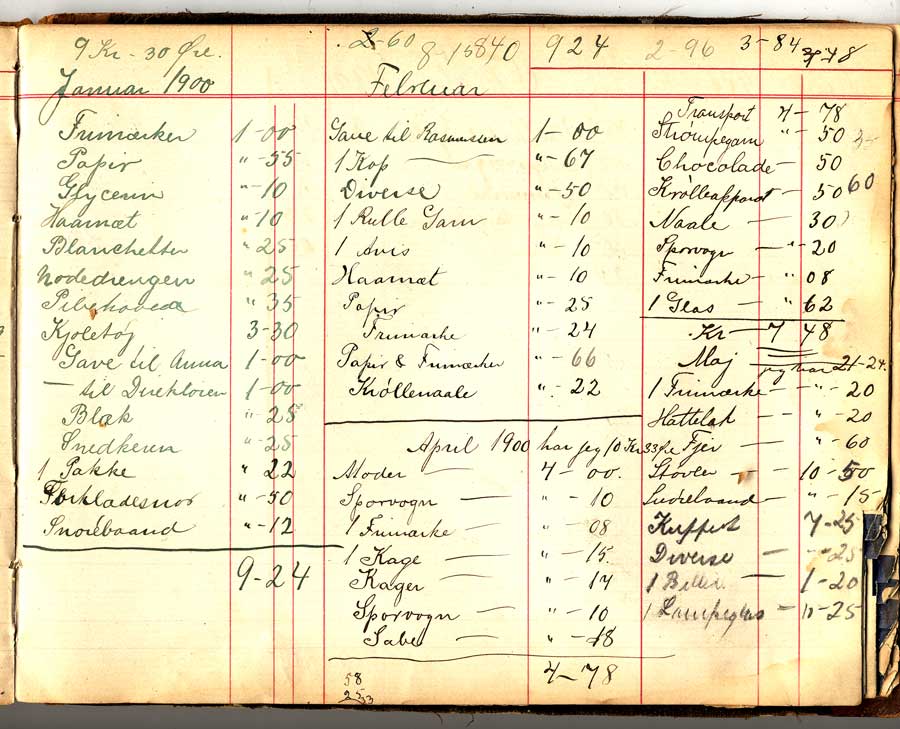 9 Kr - 30 Øre.
Januar 1900
Frimærker 1-00
Papir "-55
Glycerin "-10
Haarnæt "-10
Blanchetter "-25
Nodedrengen "-25
"-35
Kjoletøj 3-30
Gave til Anna 1-00
— til Direktøren 1-00
Blæk "-25
Snedkeren "-25
1 Pakke "-22
Forkladesnor "-50
Snørebaand "-12
9-24
2-60 8-15 840 924
Februar
Gave til Rasmussen 1-00
1 Kop — "-67
Diverse "-50
1 Rulle Garn "-10
1 Avis "-10
Haarnæt "-10
Papir "-25
Frimærke "-24
Papir & Frimærker "-66
Krøllenaale "-22
April 1900 har jeg 10 Kr 33 Øre
Moder — 4-00.
Sporvogn — "-10
1 Frimærke — "-08
1 Kage — "-15.
Kager — "-14
Sporvogn — "-10
Sæbe — "-18
4-78
58
2-96 3-84 48
Transport 4-78
Strømpegarn "-50
Chocolade — 50
Krølleapparat — 50 60
Naale — 30
Sporvogn — "-20
Frimærke — "08
1 Glas — "62
Kr — 7 48
Maj jeg har 21-24.
1 Frimærke — "-20
Hattelak — "-20
Fjer — "-60
Støvler — 10-50
Snørebaand — "-15
Kuffert 7-25
Diverse — "-25
1 — 1-20
1 Lampeglas — "-25